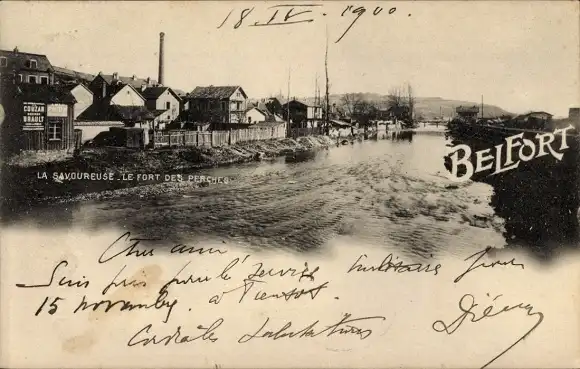 18. IV. 1900.
COUZAN
BRAULT
BELFORT
LA SAVOUREUSE _ LE FORT DES PERCHES
Cher ami
Suis pris pour le service militaire
15 novembre. à
Cordiales Salutations